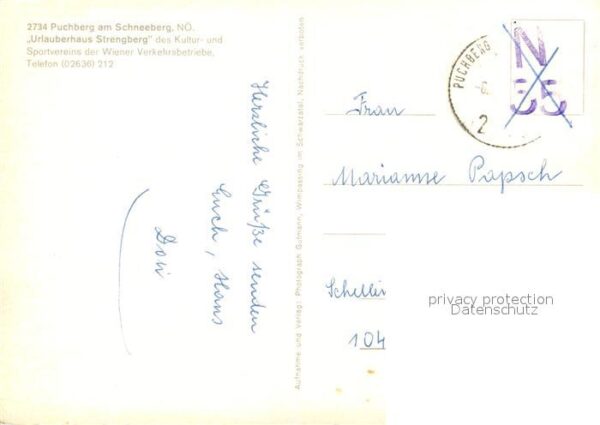 2734 Puchberg am Schneeberg, NÖ.
„Urlauberhaus Strengberg" des Kultur- und
Sportvereins der Wiener Verkehrsbetriebe,
Telefon (02636) 212
Herzliche Grüße senden
Euch, Hans
Dori
Aufnahme und Verlag: Photograph Gutmann, Wimpassing im Schwarzatal, Nachdruck verboten
PUCHBERG
2
N
35
Frau
Marianne Papsch
Schelli
104
privacy protection
Datenschutz